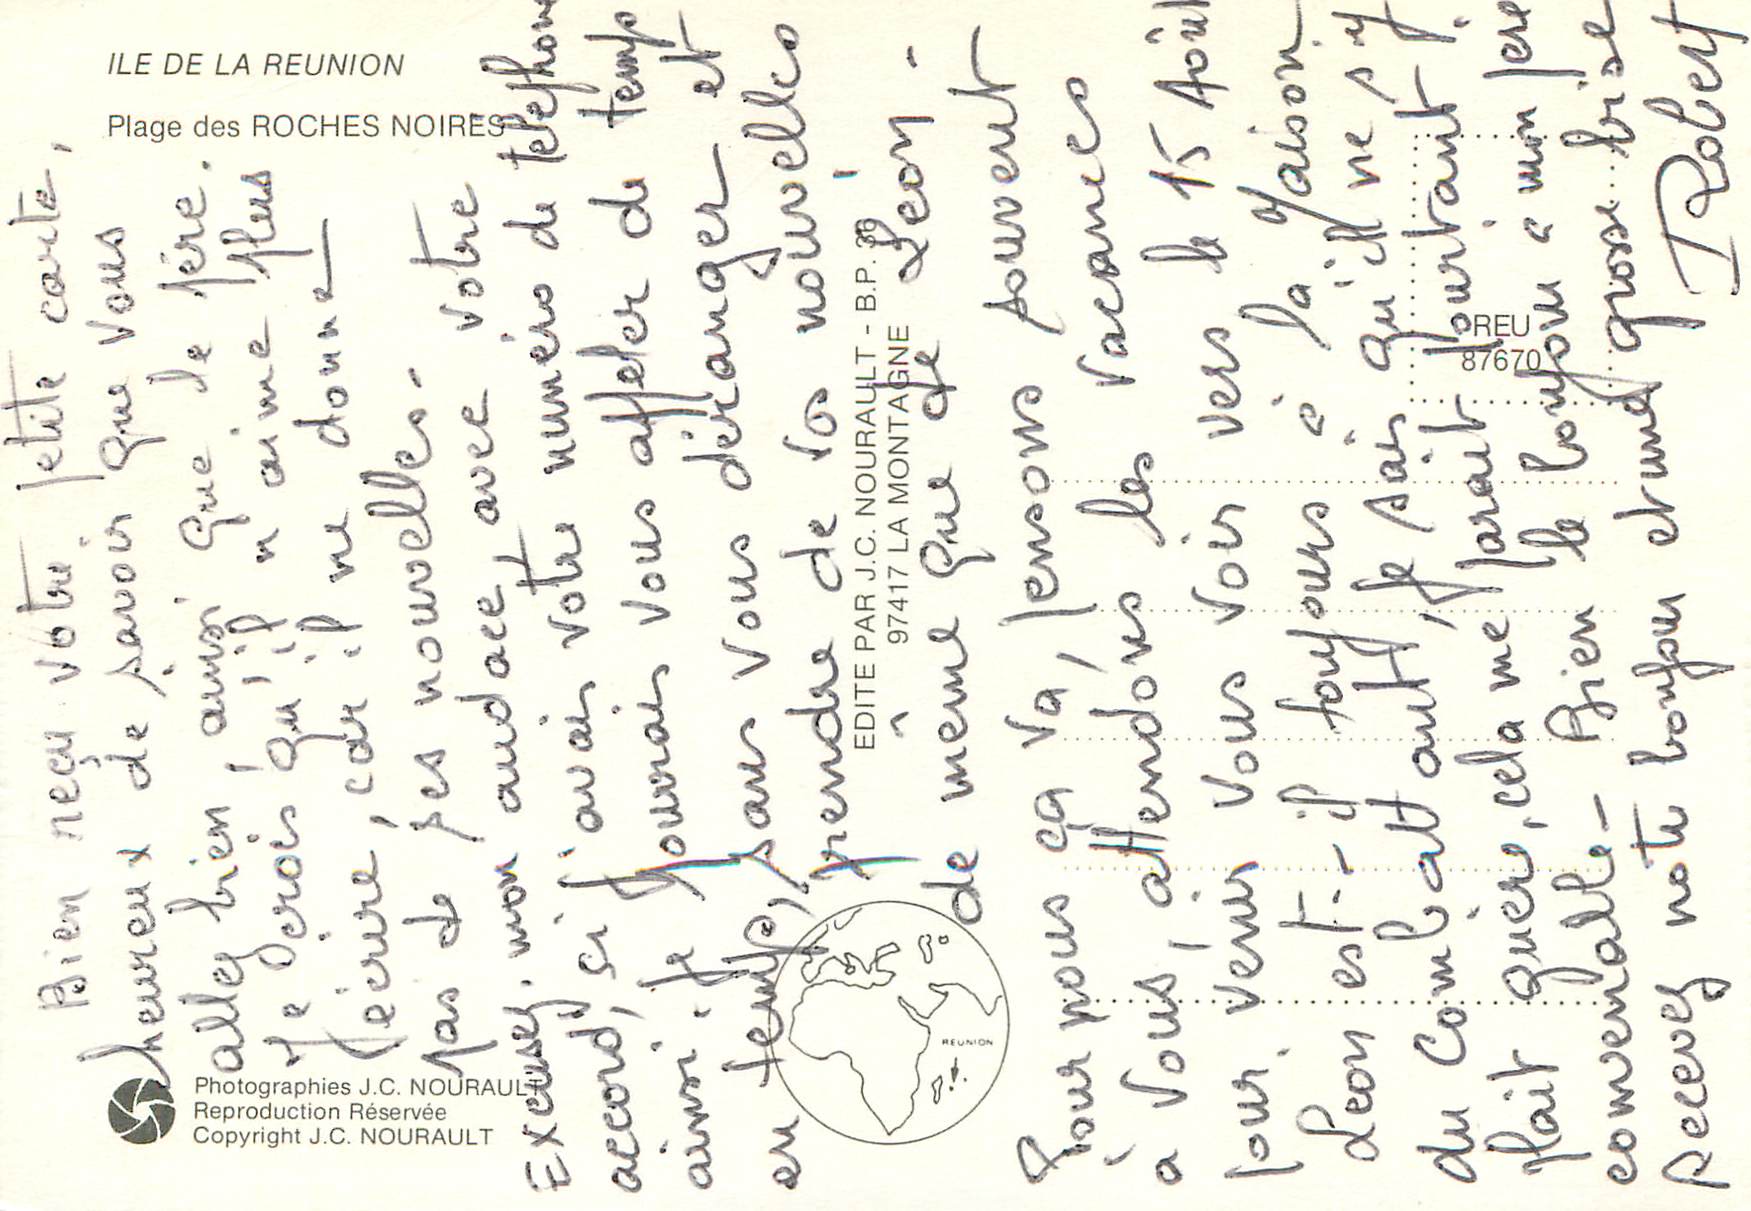 ILE DE LA REUNION
Plage des ROCHES NOIRES
Photographies J.C. NOURAULT
Reproduction Réservée
Copyright J.C. NOURAULT
EDITE PAR J.C. NOURAULT - B.P. 39
97417 LA MONTAGNE
REUNION
REU
87670
Bien reçu votre petite carte,
heureux de savoir que vous
allez bien, ainsi que le père.
Je crois qu'il n'aime plus
écrire, car il ne donne
pas de ses nouvelles.
Excusez, mon audace, avec votre
accord, si j'avais votre numéro de téléphone
ainsi je pourrais vous appeler de temps
en temps, sans vous déranger et
prendre de vos nouvelles
de même que de Leon.
Pour nous ça va, pensons souvent
à vous, attendons les vacances
pour venir vous voir vers le 15 Août
Leon est-il toujours à la Maison
du Combattant, je sais qu'il ne s'y
plait guère, cela me parait pourtant
convenable - Bien le bonjour à mon père
recevez notre bonjour et une grosse bise
Robert